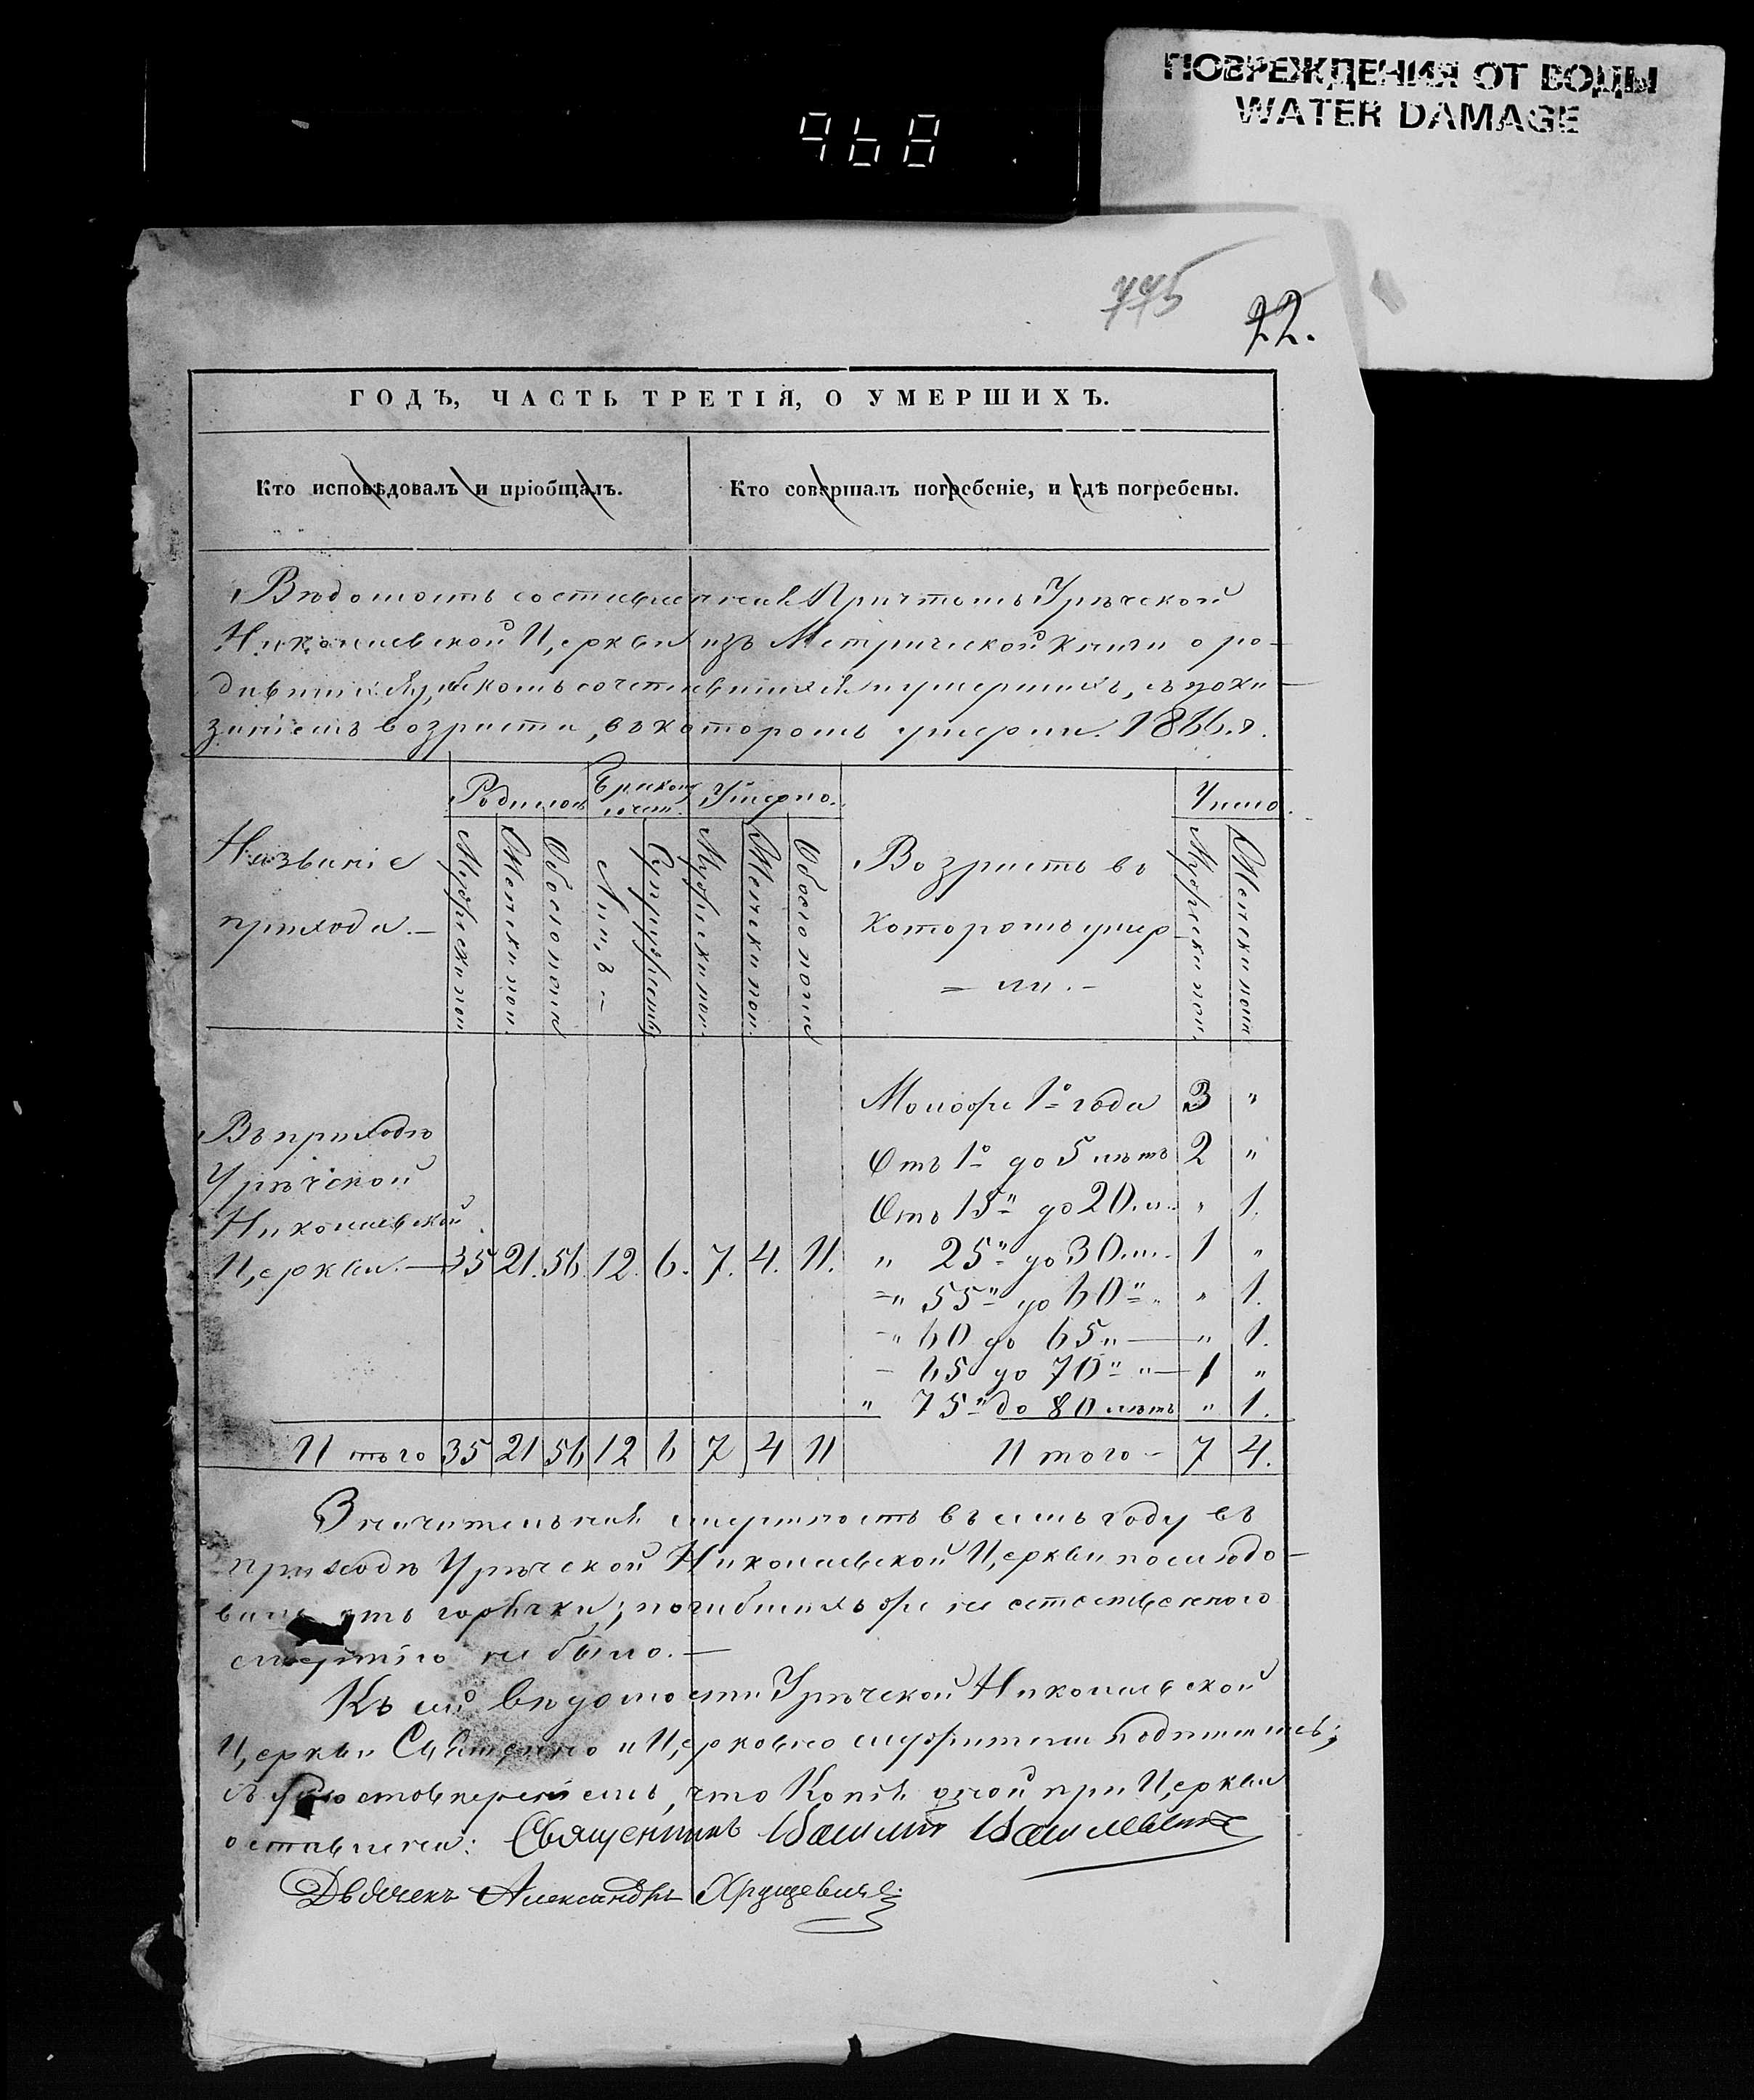 ПОВРЕЖДЕНИЯ ОТ ВОДЫ
WATER DAMAGE
968
775
22.
ГОДЪ, ЧАСТЬ ТРЕТІЯ, О УМЕРШИХЪ.
Кто исповѣдовалъ и пріобщалъ.
Кто совершалъ погребеніе, и гдѣ погребены.
Вѣдомость составленная Причтомъ Урѣчской
Николаевской Церкви изъ Метрической книги о ро-
дившихся, бракомъ сочетавшихся и умершихъ, съ пока-
заніемъ возраста, въ которомъ умерли. 1866.г.
Названіе
прихода.—
Родилось
Бракомъ
сочет.
Умерло.
Число.
Мужеска пол.
Женска пол.
Обоего пола
Лицъ —
Супружествъ
Мужеска пол.
Женска пол.
Обоего пола
Возрастъ въ
которомъ умер
= ли. –
Мужеска пол.
Женска пола
Въ приходѣ
Урѣчской
Николаевской
Церкви.— 35 21. 56. 12. 6. 7. 4. 11.
Моложе 1º года 3 "
Отъ 1º до 5 лѣтъ 2 "
Отъ 15" до 20. л. " 1.
" 25" до 30. л. 1 "
" 55" до 60" " 1.
" 60 до 65 " — " 1.
– 65 до 70 " " — 1 "
" 75" до 80 лѣтъ " 1.
Итого 35 21 56 12 6 7 4 11 Итого – 7 4.
Значительная смертность въ семъ году въ
приходѣ Урѣчской Николаевской Церкви послѣдо-
вала отъ горячки; погибшихъ же не естественною
смертію не было.—
Къ сей вѣдомости Урѣчской Николаевской
Церкви Священно и Церковно служители подписались;
съ удостовѣреніемъ, что Копія оной при Церкви
оставлена: Священникъ Василій Василевичъ
Дьячекъ Александръ Хрущевичъ.